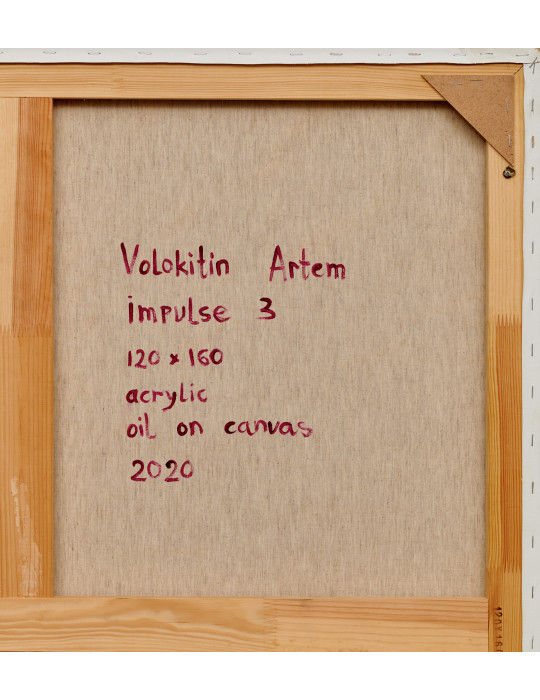 Volokitin Artem
impulse 3
120 x 160
acrylic
oil on canvas
2020